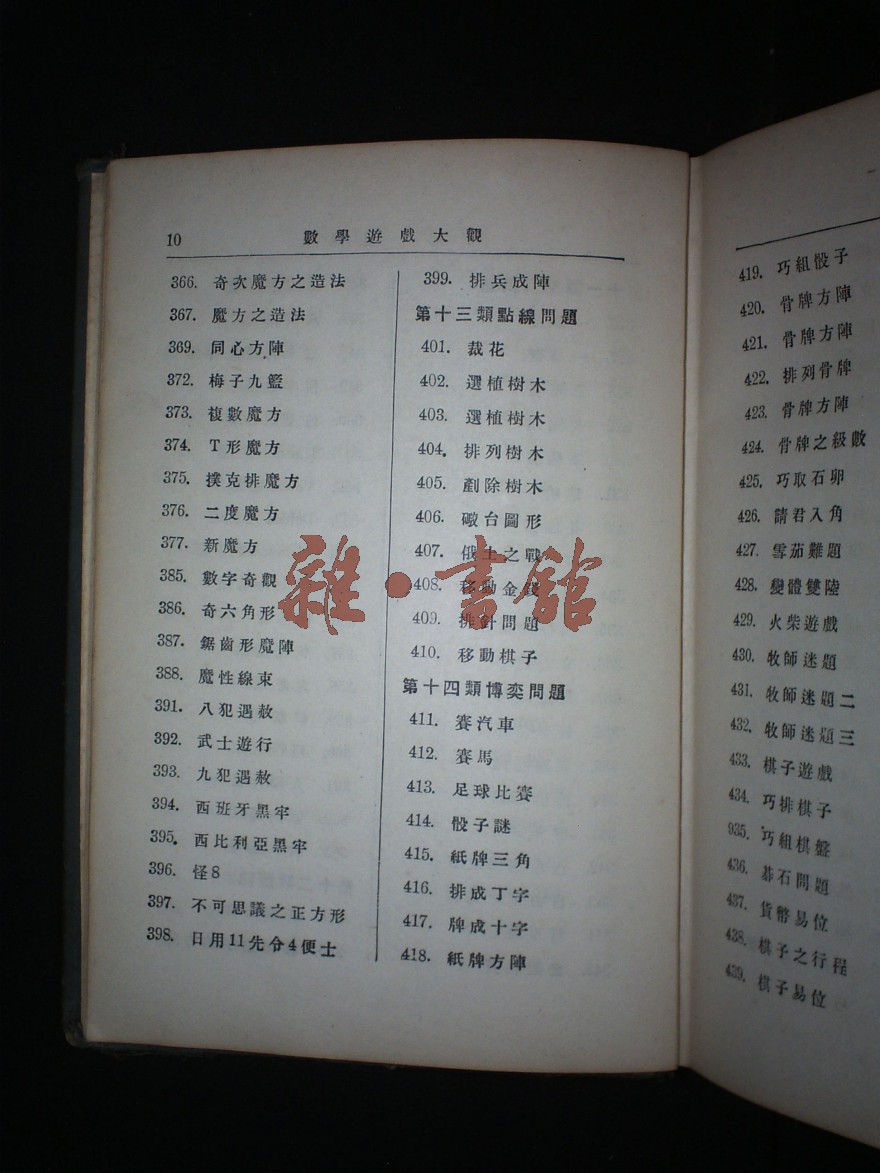 10 數學遊戲大觀
366. 奇次魔方之造法
367. 魔方之造法
369. 同心方陣
372. 梅子九籃
373. 複數魔方
374. T形魔方
375. 撲克排魔方
376. 二度魔方
377. 新魔方
385. 數字奇觀
386. 奇六角形
387. 鋸齒形魔陣
388. 魔性線束
391. 八犯遇赦
392. 武士遊行
393. 九犯遇赦
394. 西班牙黑牢
395. 西比利亞黑牢
396. 怪8
397. 不可思議之正方形
398. 日用11先令4便士
399. 排兵成陣
第十三類點線問題
401. 裁花
402. 選植樹木
403. 選植樹木
404. 排列樹木
405. 剷除樹木
406. 礮台圖形
407. 俄土之戰
408. 移動金錢
409. 排針問題
410. 移動棋子
第十四類博奕問題
411. 賽汽車
412. 賽馬
413. 足球比賽
414. 骰子謎
415. 紙牌三角
416. 排成丁字
417. 牌成十字
418. 紙牌方陣
419. 巧組骰子
420. 骨牌方陣
421. 骨牌方陣
422. 排列骨牌
423. 骨牌方陣
424. 骨牌之級數
425. 巧取石卵
426. 請君入角
427. 雪茄難題
428. 變體雙陸
429. 火柴遊戲
430. 牧師迷題
431. 牧師迷題二
432. 牧師迷題三
433. 棋子遊戲
434. 巧排棋子
935. 巧組棋盤
436. 碁石問題
437. 貨幣易位
438. 棋子之行程
439. 棋子易位
雜·書館